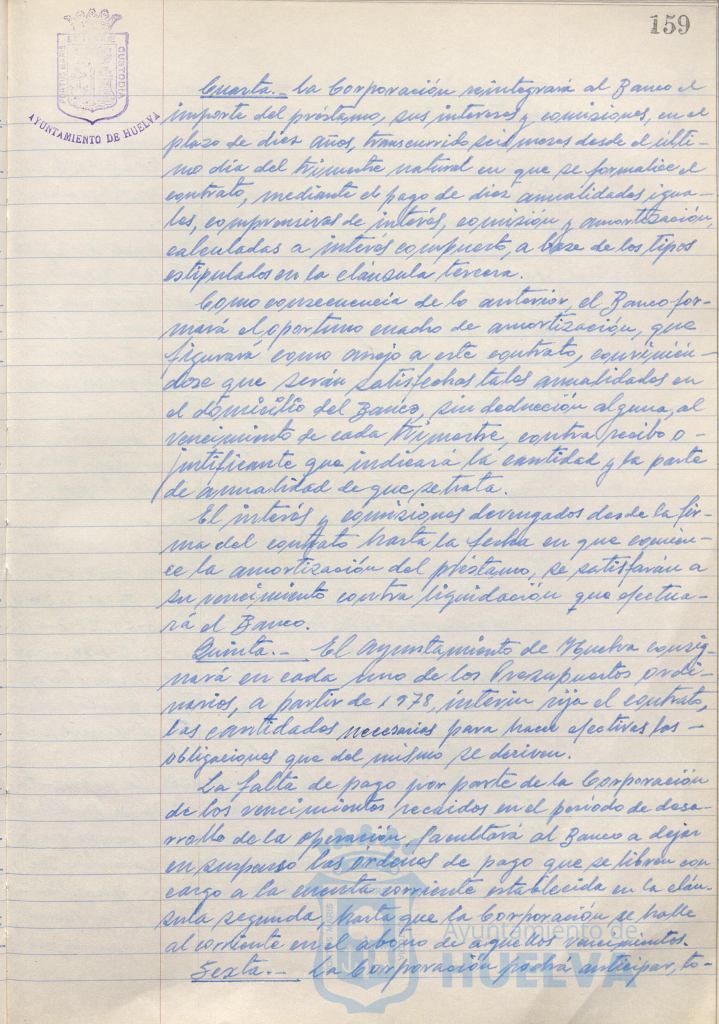 159
PORTUS MARIS CUSTODIA
AYUNTAMIENTO DE HUELVA
Cuarta.- La Corporación reintegrará al Banco el
importe del préstamo, sus intereses y comisiones, en el
plazo de diez años, transcurrido seis meses desde el últi-
mo día del trimestre natural en que se formalice el
contrato, mediante el pago de diez anualidades igua-
les, comprensivas de interés, comisión y amortización,
calculadas a interes compuesto, a base de los tipos
estipulados en la cláusula tercera.
Como consecuencia de lo anterior, el Banco for-
mará el oportuno cuadro de amortización, que
figurará como anejo a este contrato, convinién-
dose que serán satisfechas tales anualidades en
el domicilio del Banco, sin deducción alguna, al
vencimiento de cada trimestre, contra recibo o
justificante que indicará la cantidad y la parte
de anualidad de que se trata.
El interés y comisiones devengados desde la fir-
ma del contrato hasta la fecha en que comien-
ce la amortización del préstamo, se satisfarán a
su vencimiento contra liquidación que efectua-
rá el Banco.
Quinta.- El Ayuntamiento de Huelva consig-
nará en cada uno de los Presupuestos ordi-
narios, a partir de 1978, interin rija el contrato,
las cantidades necesarias para hacer efectivas las
obligaciones que del mismo se deriven.
La falta de pago por parte de la Corporación
de los vencimientos recaidos en el período de desa-
rrollo de la operación facultará al Banco a dejar
en suspenso las órdenes de pago que se libren con
cargo a la cuenta corriente establecida en la cláu-
sula segunda, hasta que la Corporación se halle
al corriente en el abono de aquellos vencimientos.
Sexta.- La Corporación podrá anticipar, to-
Ayuntamiento de
HUELVA